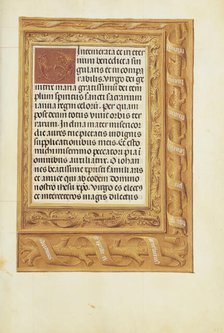 Intemerata et in eter
num benedicta sin
gularis et incompa
rabilis virgo dei ge
nitrix maria gratissimum dei tem
plum spiritus sancti sacrarium
ianua regni celorum. Per quam
post deum totus vivit orbis ter
rarum. Inclina mater misericor
die aures tue pietatis indignis
supplicationibus meis. Et esto
michi miserrimo peccatori pia in
omnibus auxiliatrix. O iohan
nes beatissime xpristi familiaris
et amice qui ab eodem domino
nostro ihesu xpo. Virgo es electus
et inter ceteros magis dilectus